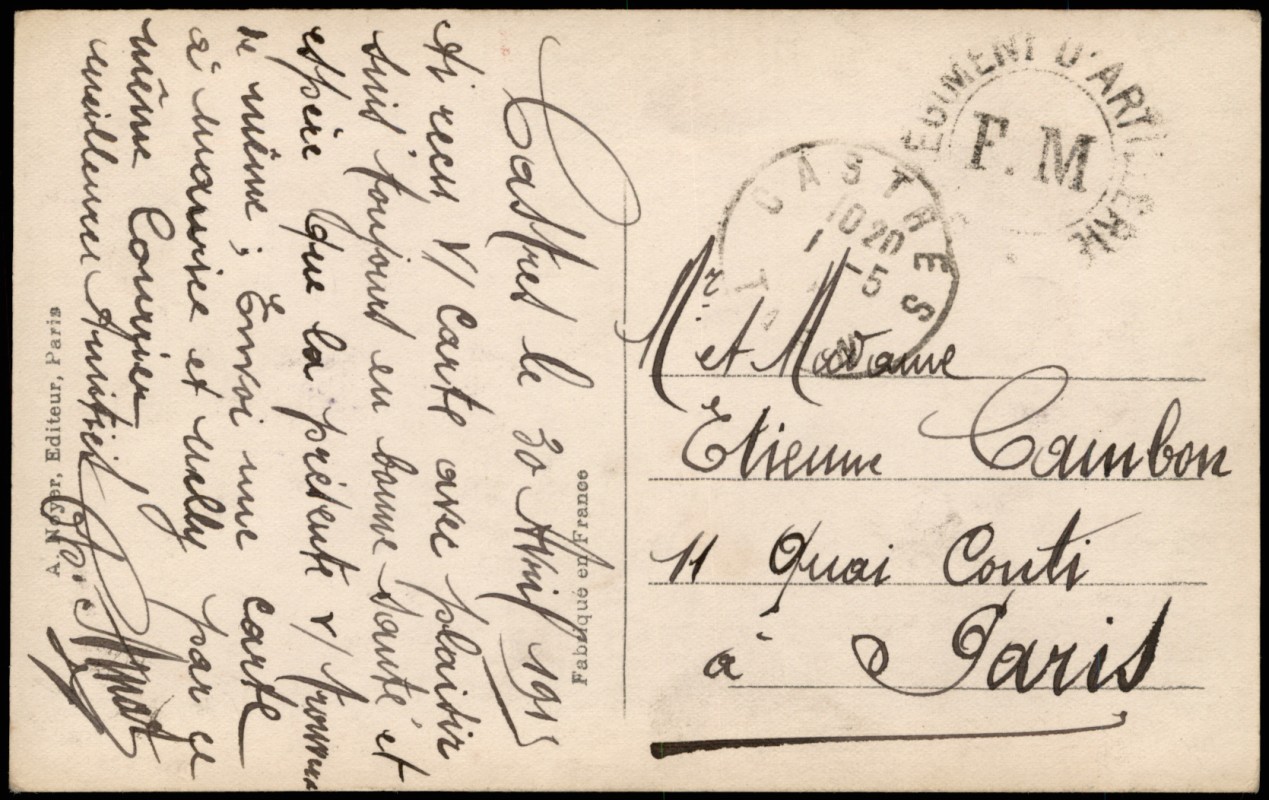 Castres le 30 Avril 1915
Ai recu v/ carte avec plaisir
suis toujours en bonne santé et
espère que la présente v/ trouvera
de même ; Envoi une carte
à maurise et nelly par ce
même Courrier
meilleures Amitiés
A. Noyer, Editeur, Paris
Fabriqué en France
REGIMENT D'ARTILLERIE
F. M
CASTRES
10 20
1 - 5
Mr et Madame
Etienne Cambon
11 Quai Conti
à Paris